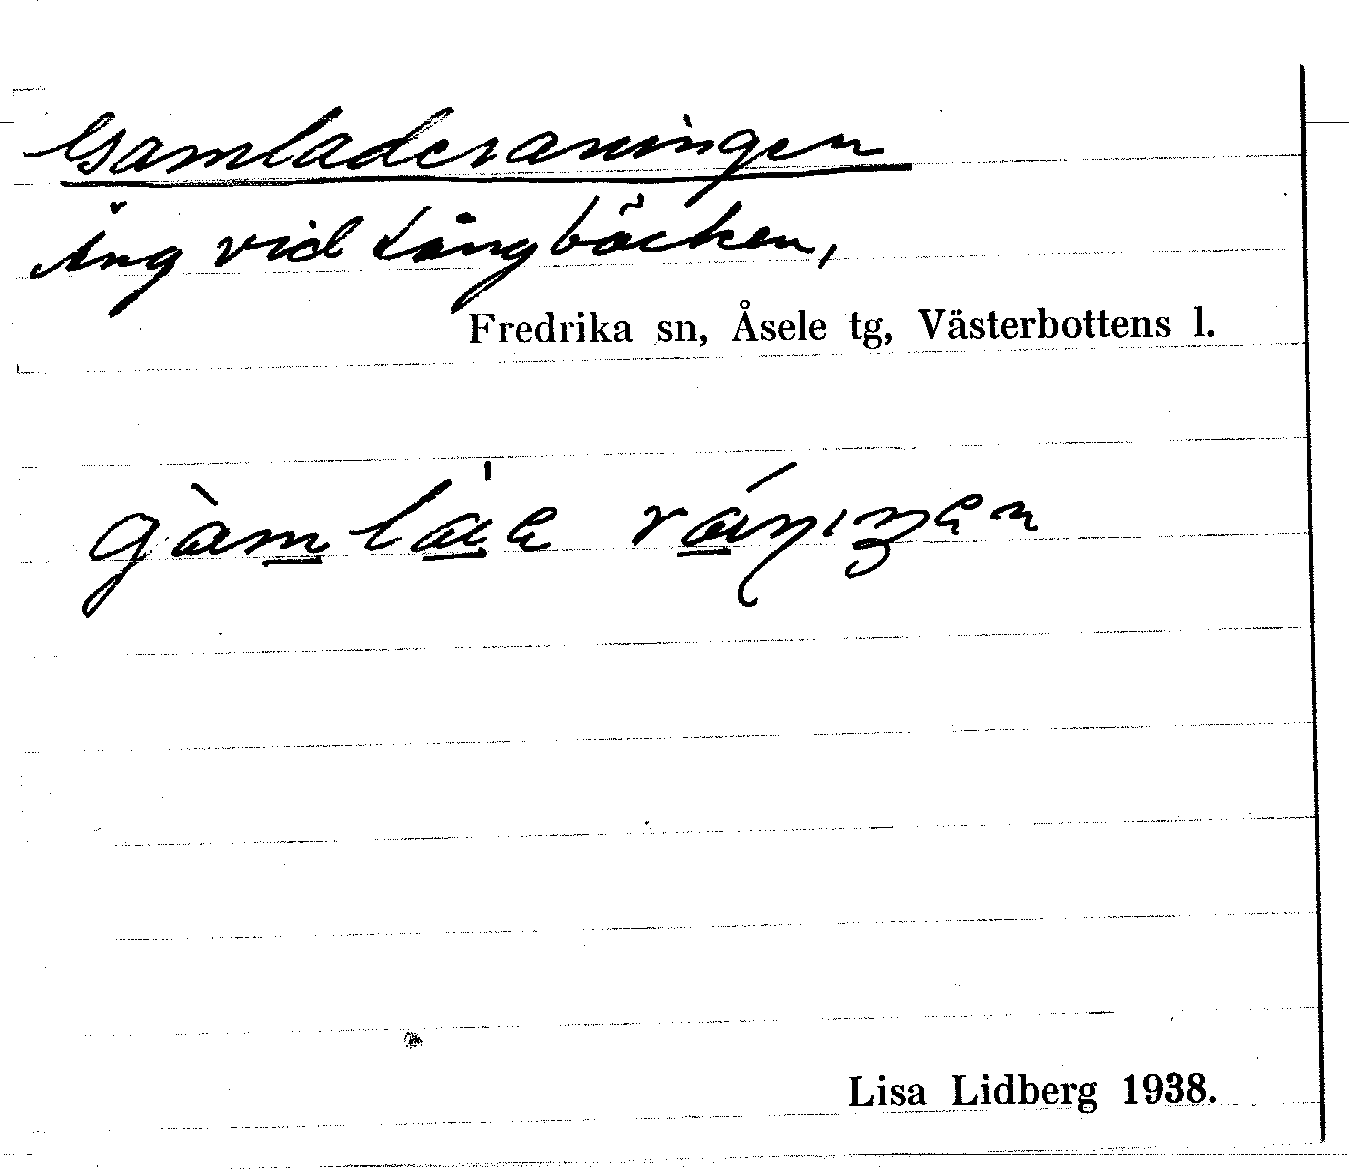 Gamladeraningen
Äng vid Långbäcken,
Fredrika sn, Åsele tg, Västerbottens l.
Lisa Lidberg 1938.